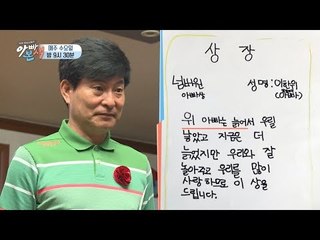 아빠본색
매주 수요일
밤 9시 30분
상 장
넘버원
아빠상
성명: 이한위
(아빠)
위 아빠는 늙어서 우릴
낳았고 지금은 더
늙었지만 우리와 잘
놀아주고 우리를 많이
사랑하므로 이 상을
드립니다.